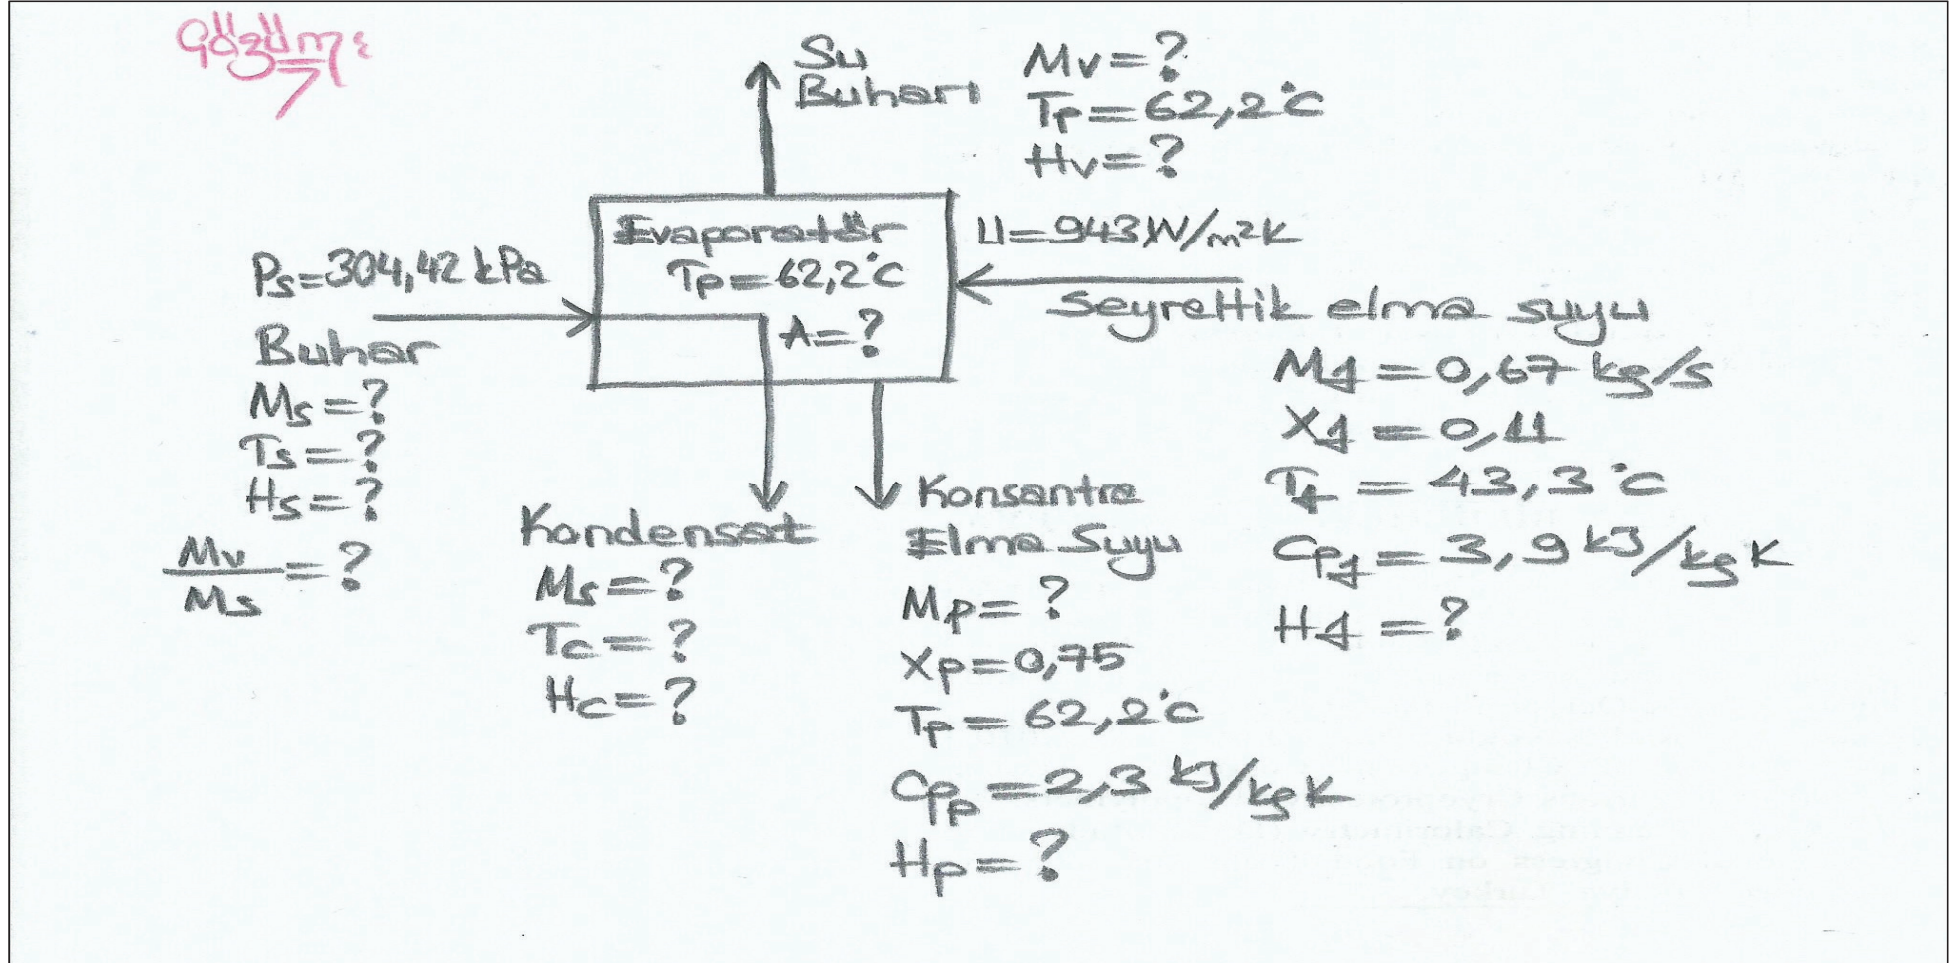 Çözüm:
Su
Buharı
Mv=?
Tp=62,2°C
Hv=?
Evaporatör
Tp=62,2°C
A=?
U=943W/m²K
Ps=304,42 kPa
Buhar
Ms=?
Ts=?
Hs=?
Mv/Ms=?
Seyreltik elma suyu
Mf=0,67 kg/s
Xf=0,11
Tf=43,3°C
Cpf=3,9 kJ/kg K
Hf=?
Kondensat
Ms=?
Tc=?
Hc=?
Konsantre
Elma Suyu
Mp=?
Xp=0,75
Tp=62,2°C
Cpp=2,3 kJ/kg K
Hp=?